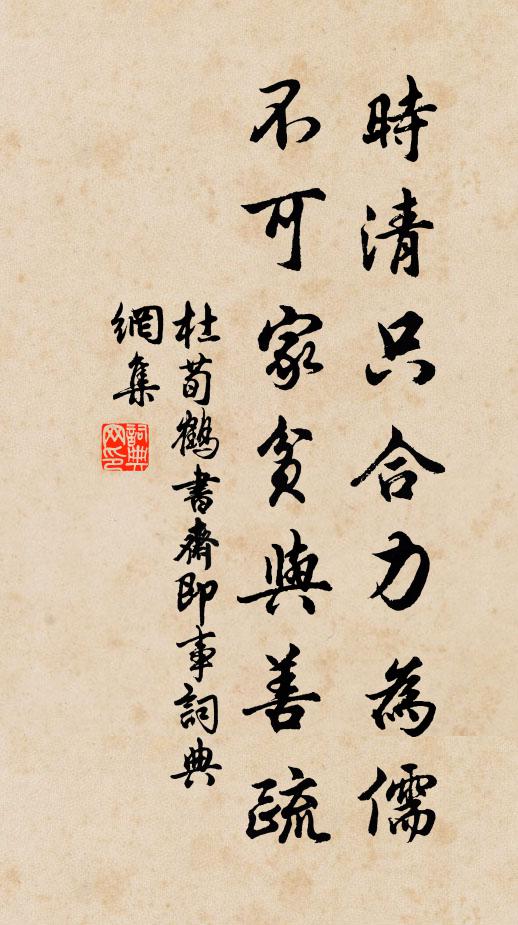 時清只合力為儒
不可家貧與善疏
杜荀鶴書齋即事詞典
網集
詞典網印